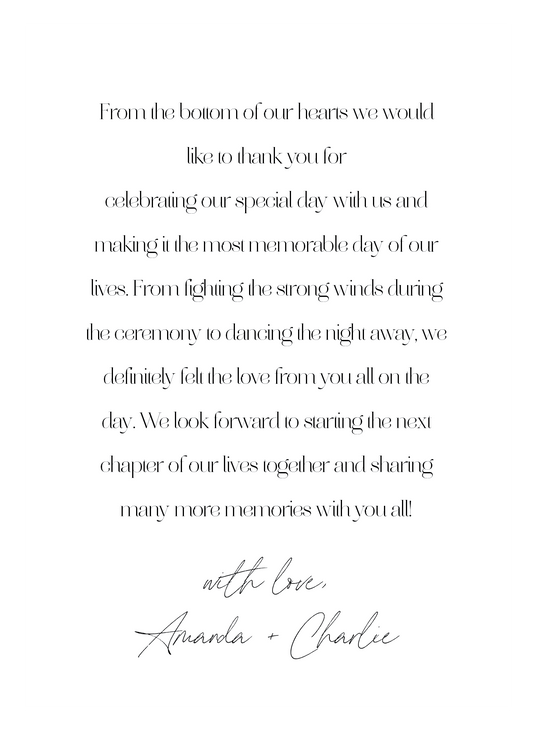 From the bottom of our hearts we would
like to thank you for
celebrating our special day with us and
making it the most memorable day of our
lives. From fighting the strong winds during
the ceremony to dancing the night away, we
definitely felt the love from you all on the
day. We look forward to starting the next
chapter of our lives together and sharing
many more memories with you all!
with love,
Amanda + Charlie